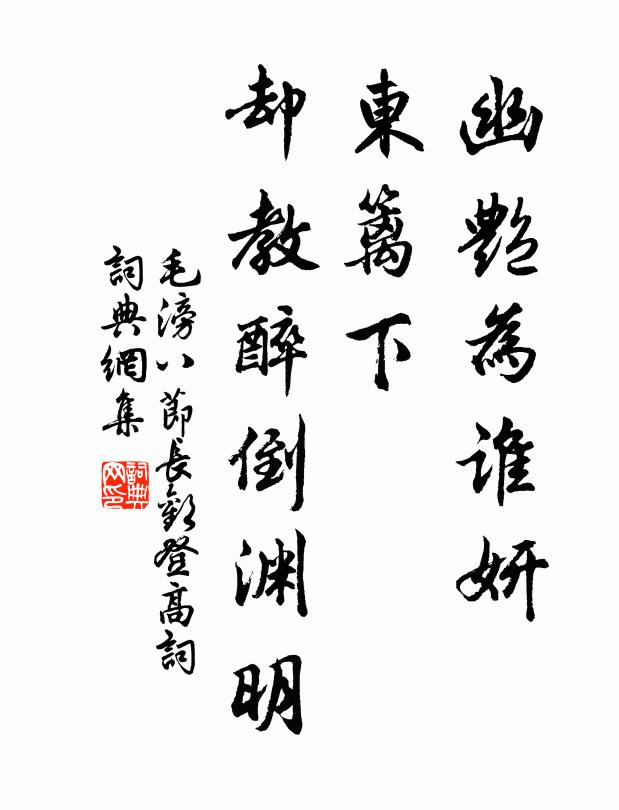 幽艷為誰妍
東籬下
却教醉倒淵明
毛滂八節長歡登高詞
詞典網集
詞典
网印